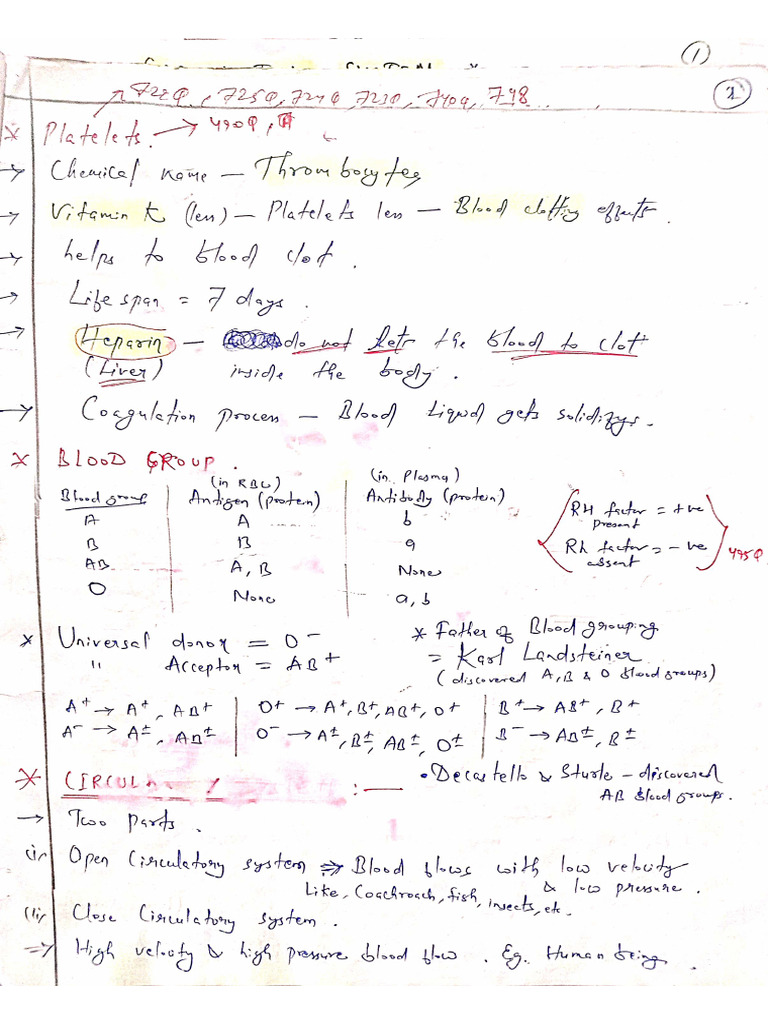 1
722Q, 725Q, 727Q, 773Q, 740Q, 748
1
* Platelets. → 490Q,
→ Chemical name — Thrombocytes
→ Vitamin K (less) — Platelets less — Blood clotting effects.
→ helps to blood clot.
→ Life span = 7 days.
→ Heparin — do not lets the blood to clot
(Liver) inside the body.
→ Coagulation process — Blood liquid gets solidifys.
* BLOOD GROUP.
(in RBC) (in Plasma)
Blood group Antigen (protein) Antibody (protein)
A A b
B B a
AB A, B None
O None a, b
RH factor = +ve
present
Rh factor = -ve
absent
495Q
* Universal donor = O⁻
" Acceptor = AB⁺
* Father of Blood grouping
= Karl Landsteiner
(discovered A, B & O blood groups)
A⁺ → A⁺, AB⁺ | O⁺ → A⁺, B⁺, AB⁺, O⁺ | B⁺ → AB⁺, B⁺
A⁻ → A±, AB± | O⁻ → A±, B±, AB±, O± | B⁻ → AB±, B±
* CIRCUL :—
• Decastello & Sturle – discovered
AB Blood groups.
→ Two Parts.
(i) Open Circulatory system ⇒ Blood flows with low velocity
& low pressure.
Like, Coachroach, fish, insects, etc.
(ii) Close Circulatory system.
⇒ High velocity & high pressure blood flow. Eg. Human being.